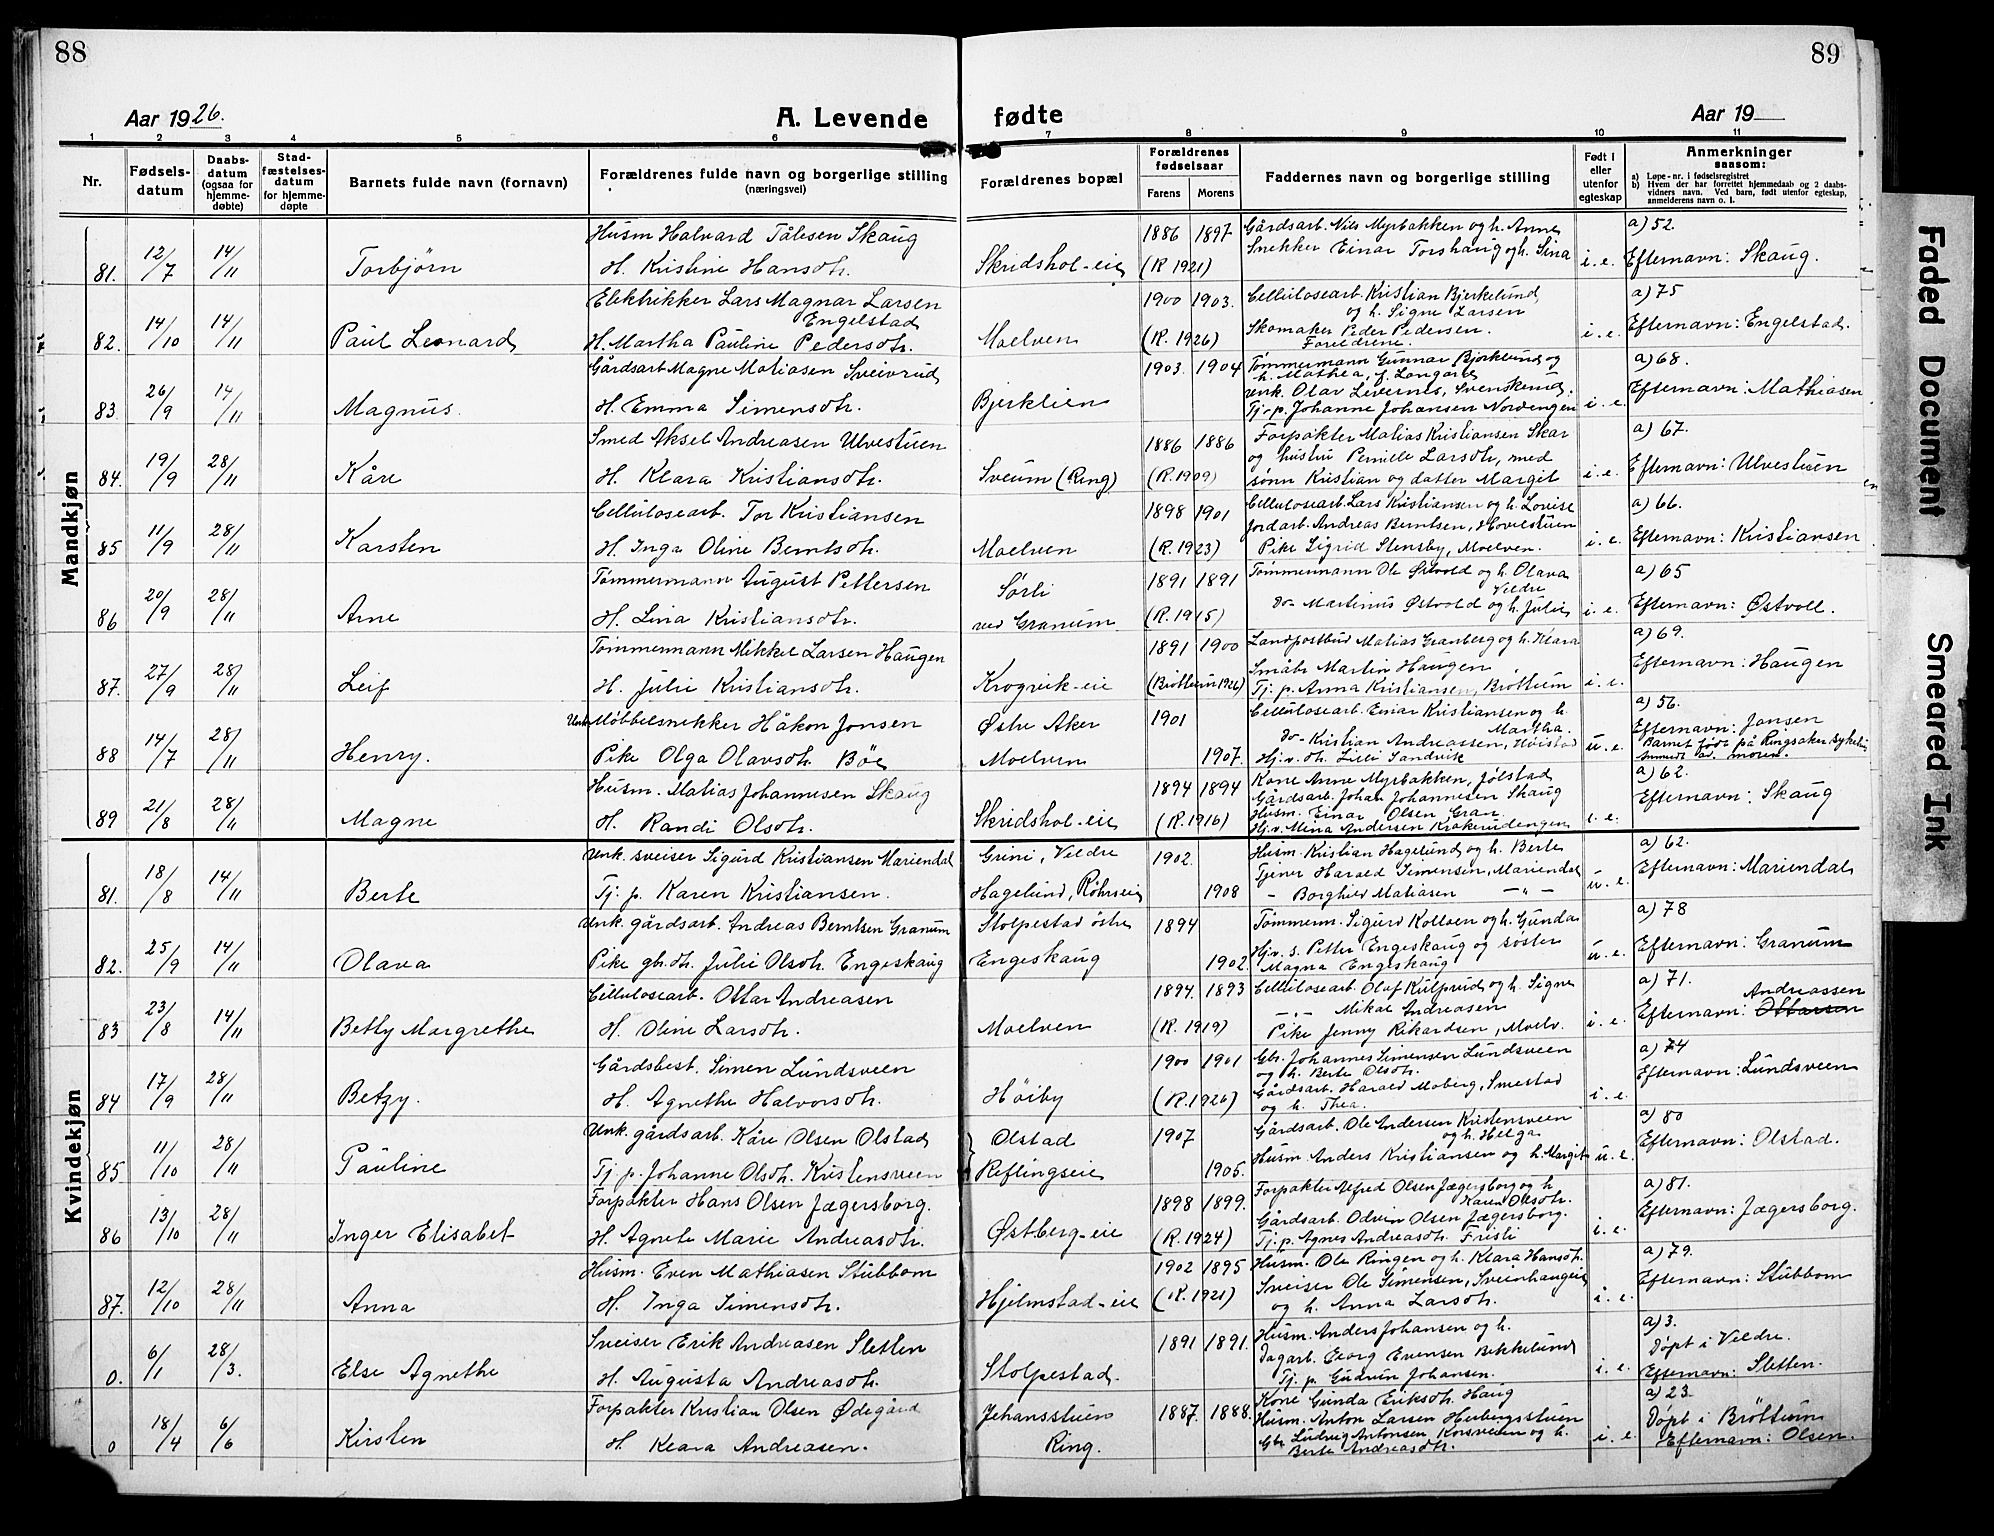 88
89
Aar 1926.
A. Levende
fødte
Aar 19
1 2 3 4 5 6 7 8 9 10 11
Nr.
Fødsels-
datum
Daabs-
datum
(ogsaa for
hjemme-
døbte)
Stad-
fæstelses-
datum
for hjemme-
døpte
Barnets fulde navn (fornavn)
Forældrenes fulde navn og borgerlige stilling
(næringsvei)
Forældrenes bopæl
Forældrenes
fødselsaar
Farens Morens
Faddernes navn og borgerlige stilling
Født i
eller
utenfor
egteskap
Anmerkninger
saasom:
a) Løpe-nr. i fødselsregistret
b) Hvem der har forrettet hjemmedaab og 2 daabs-
vidners navn. Ved barn, født utenfor egteskap,
anmelderens navn o. l.
Mandkjøn
81. 12/7 14/11 Torbjörn
Husm Halvard Tålesen Skaug
H. Kristine Hansdtr.
Skridshol-eie
1886 1897
(R. 1921)
Gårdsarb. Nils Myrbakken og h. Anne
Snekker Einar Torshaug og h. Sina
i. e.
a) 52.
Efternavn: Skaug.
82. 14/10 14/11 Paul Leonard
Elektrikker Lars Magnar Larsen
Engelstad
H. Martha Pauline Pedersdtr.
Moelven
1900 1903.
(R. 1926)
Cellulosearb. Kristian Bjerkelund,
og h. Signe Larsen
Skomaker Peder Pedersen.
Foreldrene.
i. e.
a) 75
Efternavn: Engelstad.
83. 26/9 14/11 Magnus.
Gårdsarb Magne Matiasen Sveivrud
H. Emma Simensdtr.
Bjerklien
1903. 1904
Tømmermann Gunnar Bjorklund og
h. Mathea, f. Langård
Unk. Olav Levernes, Svenskerud.
Tj. p. Johanne Johansen Nordengen
i. e.
a) 68.
Efternavn: Mathiasen
84. 19/9 28/11 Kåre
Smed Aksel Andreasen Ulvestuen
H. Klara Kristiansdtr.
Sveum (Ring)
1886 1886
(R. 1909)
Forpakter Matias Kristiansen Skar
og hustru Pernille Larsdtr, med
sønn Kristian og datter Margit
i. e.
a) 67.
Efternavn: Ulvestuen
85 11/9 28/11 Karsten
Cellulosearb. Tor Kristiansen
H. Inga Oline Berntsdtr.
Moelven
1898 1901
(R. 1923)
Cellulosearb. Lars Kristiansen og h. Lovise
Jordarb. Andreas Berntsen, Hovlestuen
Pike Sigrid Stensby, Moelven.
i. e.
a) 66.
Efternavn: Kristiansen
86 20/9 28/11 Arne
Tømmermann August Pettersen
H. Lina Kristiansdtr.
Sørli
ved Granum
1891 1891
(R. 1915)
Tømmermann Ole Østvold og h. Olava
Veldre
do - Martinus Østvold og h. Julie
i. e.
a) 65
Efternavn: Østvoll.
87. 27/9 28/11 Leif
Tømmermann Mikkel Larsen Haugen
H. Julie Kristiansdtr.
Krogvik-eie
1891 1900
(Brøttum 1926)
Landpostbud Matias Granberg og h. Klara
Småbr Martin Haugen
Tj. p. Anna Kristiansen, Brøttum
i. e.
a) 69.
Efternavn: Haugen
88 14/7 28/11 Henry.
Unk. Møbbelsnekker Håkon Jonsen
Pike Olga Olavsdtr. Böe
Østre Aker
Moelven
1901
1907.
Cellulosearb. Einar Kristiansen og h.
Martha.
do - Kristian Andreassen, Høistad
Hj. v. dtr. Lilli Sandvik
u. e.
a) 56.
Efternavn: Jonsen
Barnet født på Ringsaker sykehus
anmeldt av moren.
89 21/8 28/11 Magne
Husm. Matias Johannesen Skaug
H. Randi Olsdtr.
Skridshol-eie
1894 1894
(R. 1916)
Kone Anne Myrbakken, Jølstad
Gårdsarb. Johan Johannesen Skaug
Husm. Einar Olsen Gran.
Hj. v. Mina Andersen Krokerudengen
i. e.
a) 62.
Efternavn: Skaug
Kvindekjøn
81. 18/8 14/11 Berte
Unk. sveiser Sigurd Kristiansen Mariendal
Tj. p. Karen Kristiansen.
Grini, Veldre
Hagelund, Röhrseie
1902.
1908
Husm. Kristian Hagelund og h. Berte
Tjener Harald Simensen, Mariendal
- Borghild Matiasen - " -
u. e.
a) 62.
Efternavn: Mariendal
82. 25/9 14/11 Olava
Unk. gårdsarb. Andreas Berntsen Granum
Pike gb. dtr. Julie Olsdtr. Engeskaug
Stolpestad östre
Engeskaug
1894
1902.
Tømmerm. Sigurd Kolloen og h. Gunda
Hj. v. s. Petter Engeskaug og søster
Magna Engeskaug
u. e.
a) 78
Efternavn: Granum
83 23/8 14/11 Betty Margrethe
Cellulosearb. Ottar Andreasen
H. Oline Larsdtr.
Moelven
1894. 1893
(R. 1919)
Cellulosearb. Olaf Kulprud og h. Signe
- " - Mikal Andreasen
Pike Jenny Rikardsen, Moelv.
i. e.
a) 71.
Andreassen
Efternavn: Ottarsen
84 17/9 28/11 Betzy.
Gårdsbest. Simen Lundsveen
H. Agnethe Halvorsdtr.
Høiby
1900 1901
(R. 1926)
Gbr. Johannes Simensen Lundsveen
og h. Berte Olsdtr.
Gårdsarb. Harald Moberg, Smestad
og h. Thea.
i. e.
a) 74
Efternavn: Lundsveen
85 11/10 28/11 Pauline
Unk. gårdsarb. Kåre Olsen Olstad
Tj. p. Johanne Olsdtr. Kristensveen
Olstad
Reflingseie
1907
1905.
Gårdsarb. Ole Andersen Kristensveen
og h. Helga
Husm. Anders Kristiansen og h. Margit
u. e.
a) 80
Efternavn: Olstad.
86 13/10 28/11 Inger Elisabet
Forpakter Hans Olsen Jægersborg.
H. Agnete Marie Andreasdtr.
Østberg-eie
1898 1899.
(R. 1924)
Forpakter Alfred Olsen Jægersborg og h
Karen Olsdtr.
Gårdsarb. Odvin Olsen Jægersborg.
Tj. p. Agnes Andreasdtr. Frisli
i. e.
a) 81.
Efternavn: Jægersborg.
87. 12/10 28/11 Anna
Husm. Even Mathiasen Stubbom
H. Inga Simensdtr.
Hjelmstad-eie
1902 1895
(R. 1921)
Husm. Ole Ringen og h. Klara Hansdtr.
Sveiser Ole Simensen, Sveinhaugeie
og h. Anna Larsdtr.
i. e.
a) 79.
Efternavn: Stubbom
0. 6/1 28/3. Else Agnethe
Sveiser Erik Andreasen Sletten
H. Augusta Andreasdtr.
Stolpestad.
1891 1891.
Husm. Anders Johansen og h.
Dagarb. Georg Evensen Bekkelund
Tj. p. Gudrun Johansen.
i. e.
a) 3.
Døpt i Veldre.
Efternavn: Sletten.
0 18/4 6/6 Kirsten
Forpakter Kristian Olsen Ødegård
H. Klara Andreasen.
Jehansstuen
Ring.
1887. 1888.
Kone Gunda Eriksdtr. Haug
Husm. Anton Larsen Herbergsstuen
Gbr Ludvig Antonsen Korsveien og h.
Berte Andreasdtr.
i. e.
a) 23.
Døpt i Brøttum
Efternavn: Olsen.
Faded Document
Smeared Ink